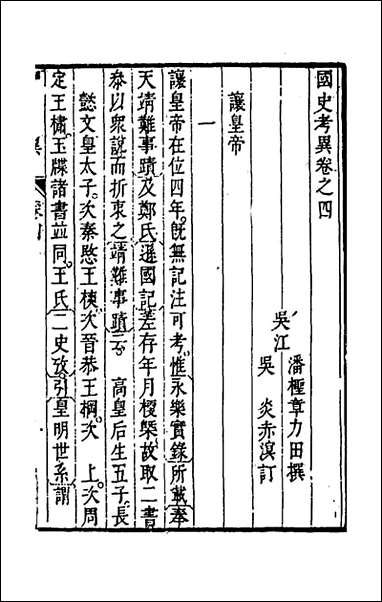 國史考異卷之四
吳江
潘檉章力田撰
吳炎赤溟訂
讓皇帝
一
讓皇帝在位四年旣無記注可考惟永樂實錄所載奉
天靖難事蹟及鄭氏遜國記差存年月梗槩故取二書
叅以衆說而折衷之靖難事蹟云 高皇后生五子長
懿文皇太子次秦愍王樉次晉恭王棡次 上次周
定王橚玉牒諸書並同王氏二史攷引皇明世系謂